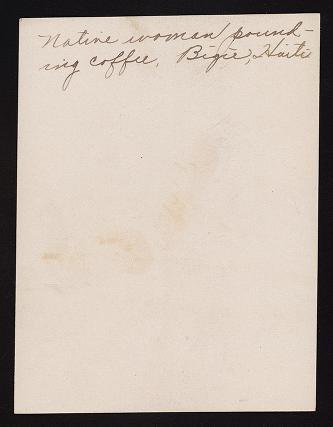 Native woman pound-
ing coffee, Bigie, Haiti